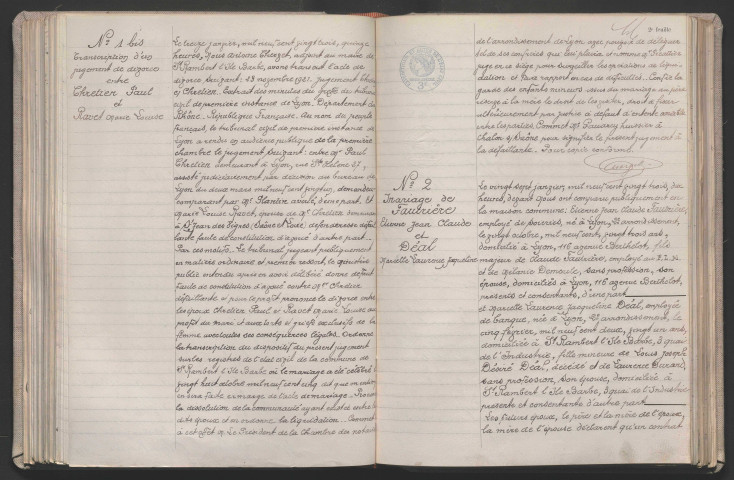 N° 1 bis
Transcription d'un
jugement de divorce
entre
Chretien Paul
et
Ravet Marie Louise
Le treize janvier, mil neuf cent vingt trois, quinze
heures, Nous Antoine Chuzet, adjoint au maire de
St Rambert l'Ile Barbe, avons transcrit l'acte de
divorce suivant: 23 novembre 1921. Jugement
Chretien. Extrait des minutes du greffe du tribunal
civil de première instance de Lyon. Département du
Rhône. République Française. Au nom du peuple
français, le tribunal civil de première instance de
Lyon a rendu en audience publique de la première
chambre le jugement suivant: entre Mr Paul
Chretien demeurant à Lyon, rue Ste Hélène 37,
assisté judiciairement par décision du bureau de
Lyon du deux mars mil neuf cent vingt un, demandeur
comparant par Me avoué, d'une part. Et
Marie Louise Ravet, épouse de Mr Chretien demeurant
à St Jean des Vignes, (Saône et Loire) défenderesse défail
lante faute de constitution d'avoué d'autre part.
Par ces motifs. Le tribunal jugeant publiquement
en matière ordinaire et premier ressort, le ministère
public entendu après en avoir délibéré donne défaut
faute de constitution d'avoué contre Mme Chretien
défaillante et pour le profit prononce le divorce entre
les époux Chretien Paul et Ravet Marie Louise au
profit du mari et aux torts et griefs exclusifs de la
femme avec toutes ses conséquences légales. Ordonne
la transcription du dispositif du présent jugement
sur les registres de l'état civil de la commune de
St Rambert l'Ile Barbe où le mariage a été célébré le
vingt huit octobre mil neuf cent dit que mention
en sera faite en marge de l'acte de mariage. Prononce
la dissolution de la communauté ayant existé entre les
dits époux et en ordonne la liquidation. Commet
à cet effet Mr Le Président de la Chambre des notaires
2e feuillet
de l'arrondissement de Lyon avec pouvoir de déléguer
tel de ses confrères qui et nomme Mr
juge en ce siège pour surveiller les opérations de liqui
dation et faire rapport en cas de difficultés. Confie la
garde des enfants mineurs issus du mariage au père
réserve à la mère le droit de les visiter, droit à fixer
ultérieurement par justice à défaut d'entente amiable
entre les parties. Commet Me huissier à
Chalon s/Saône pour signifier le présent jugement à
la défaillante. Pour copie conforme.
N° 2
Mariage de
Faubrière
Etienne Jean Claude
et
Déal
Marcelle Laurence Jacqueline
Le vingt sept janvier, mil neuf cent vingt trois, dix
heures, devant nous ont comparu publiquement en
la maison commune: Etienne Jean Claude Faubrière,
employé de soieries, né à Lyon, 2e arrondissement,
le vingt octobre, mil neuf cent, vingt deux ans,
domicilié à Lyon, 116 avenue Berthelot, fils
majeur de Claude Faubrière, employé au P.L.M.
et de Mélanie Demoule, sans profession, son
épouse, domiciliés à Lyon, 116 avenue Berthelot,
présents et consentants, d'une part
et Marcelle Laurence Jacqueline Déal, employée
de banque, née à Lyon, 2e arrondissement, le
cinq février, mil neuf cent deux, vingt un ans,
domiciliée à St Rambert l'Ile Barbe, 3 quai
de l'Industrie, fille mineure de Louis Joseph
Désiré Déal, décédé et de Laurence Durand,
sans profession, son épouse, domiciliée à
St Rambert l'Ile Barbe, 3 quai de l'Industrie
présente et consentante d'autre part
Les futurs époux, le père et la mère de l'époux,
la mère de l'épouse déclarent qu'un contrat